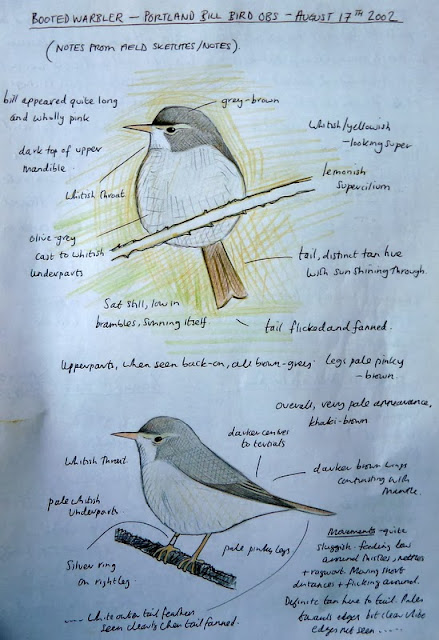 BOOTED WARBLER – PORTLAND BILL BIRD OBS – AUGUST 17TH 2002
(NOTES FROM FIELD SKETCHES/NOTES).
bill appeared quite long
and wholly pink
grey-brown
Whitish/yellowish
-looking super
dark top of upper
mandible.
lemonish
supercilium
Whitish Throat
olive-grey
cast to whitish
underparts
tail, distinct tan hue
with sun shining through.
Sat still, low in
brambles, sunning itself
tail flicked and fanned.
Upperparts, when seen back-on, all brown-grey.
Legs pale pinky
-brown.
Overall, very pale appearance,
khaki-brown
darker centres
to tertials
Whitish Throat
darker brown wings
contrasting with
mantle.
pale whitish
underparts
Silver ring
on right leg.
pale pinky legs
Movements - quite
sluggish - feeding low
around thistles, nettles
+ ragwort. Moving short
distances + flicking around.
Definite tan hue to tail. Paler
towards edges but clear white
edges not seen .....
.... White outer tail feathers
seen clearly when tail fanned.